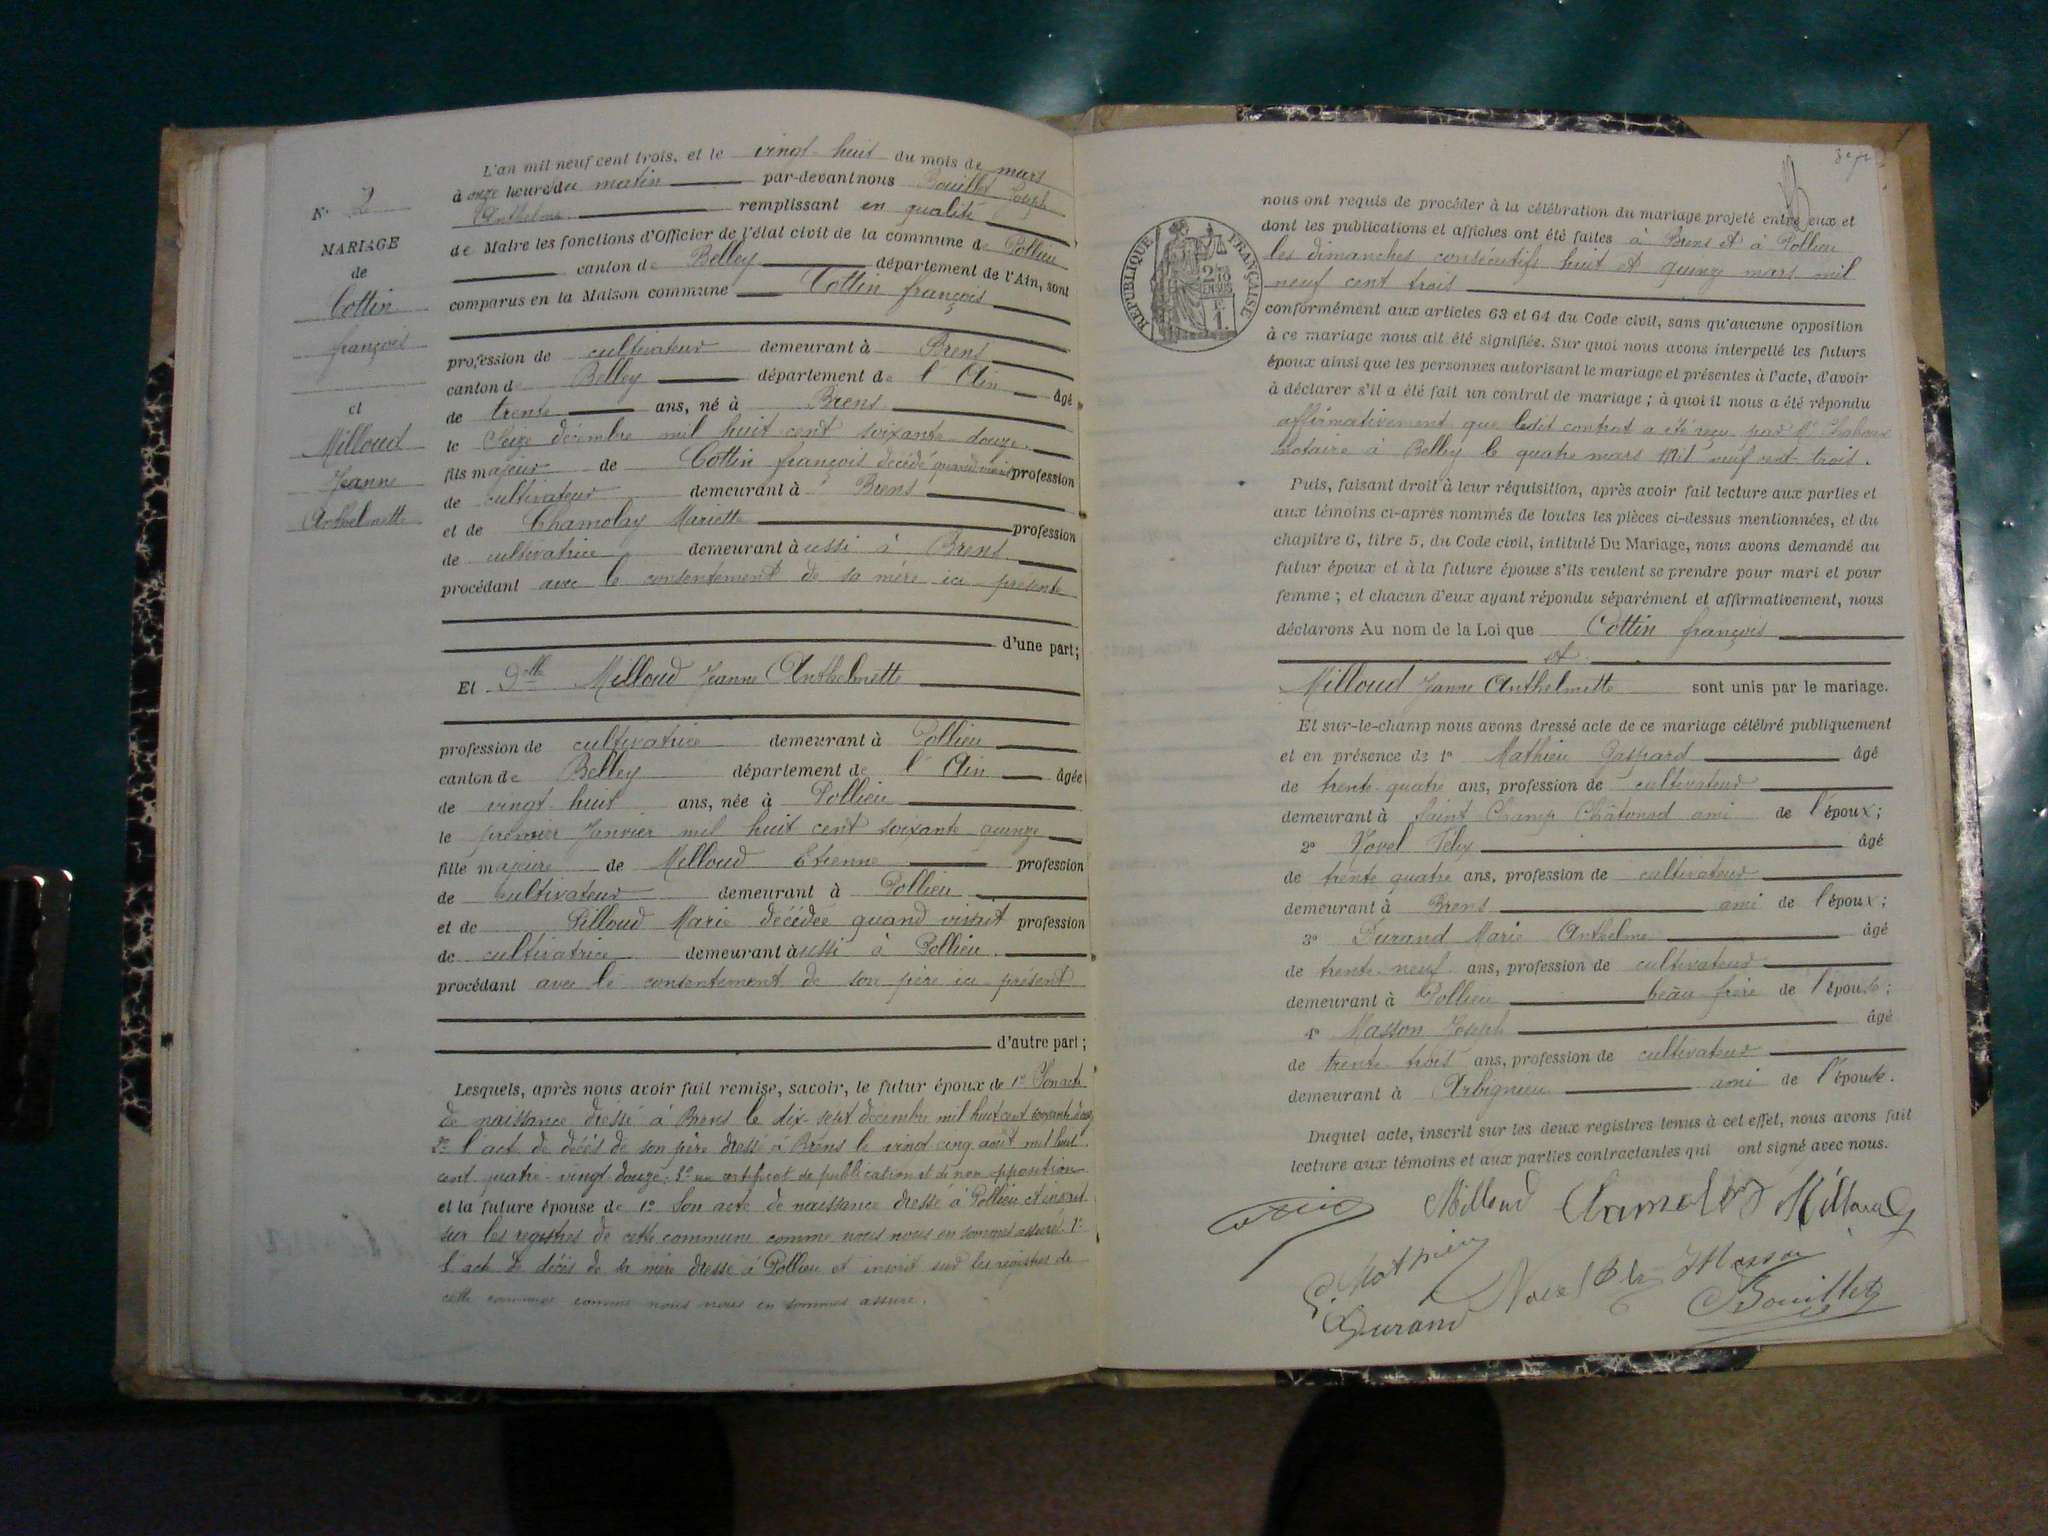 L'an mil neuf cent trois, et le vingt huit du mois de mars
à onze heure du matin par-devant nous Bouillet Joseph
Anthelme remplissant en qualité
de Maire les fonctions d'Officier de l'état civil de la commune de Pollieu
canton de Belley département de l'Ain, sont
comparus en la Maison commune Cottin françois
profession de cultivateur demeurant à Brens
canton de Belley département de l'Ain âgé
de trente ans, né à Brens
le Seize décembre mil huit cent soixante douze
fils majeur de Cottin françois décédé quand vivait profession
de cultivateur demeurant à Brens
et de Chamolay Mariette profession
de cultivatrice demeurant à ussi à Brens
procédant avec le consentement de sa mère ici présente
d'une part;
Et Dlle Milloud Jeanne Anthelmette
profession de cultivatrice demeurant à Pollieu
canton de Belley département de l'Ain âgée
de vingt huit ans, née à Pollieu
le premier Janvier mil huit cent soixante quinze
fille majeure de Milloud Etienne profession
de cultivateur demeurant à Pollieu
et de Lilloud Marie décédée quand vivait profession
de cultivatrice demeurant à ussi à Pollieu
procédant avec le consentement de son père ici présent
d'autre part;
Lesquels, après nous avoir fait remise, savoir, le futur époux de 1º Son acte
de naissance dressé à Brens le dix-sept décembre mil huit cent soixante douze
2º l'acte de décès de son père dressé à Brens le vingt cinq août mil huit
cent quatre vingt douze; 3º un certificat de publication et de non opposition
et la future épouse de 1º Son acte de naissance dressé à Pollieu et inscrit
sur les registres de cette commune comme nous nous en sommes assuré. 2º
l'acte de décès de sa mère dressé à Pollieu et inscrit sur les registres de
cette commune comme nous nous en sommes assuré.
Nº 2
MARIAGE
de
Cottin
françois
et
Milloud
Jeanne
Anthelmette
RÉPUBLIQUE FRANÇAISE
nous ont requis de procéder à la célébration du mariage projeté entre eux et
dont les publications et affiches ont été faites à Brens et à Pollieu
les dimanches consécutifs huit et quinze mars mil
neuf cent trois
conformément aux articles 63 et 64 du Code civil, sans qu'aucune opposition
à ce mariage nous ait été signifiée. Sur quoi nous avons interpellé les futurs
époux ainsi que les personnes autorisant le mariage et présentes à l'acte, d'avoir
à déclarer s'il a été fait un contrat de mariage; à quoi il nous a été répondu
affirmativement que ledit contrat a été reçu par Me
notaire à Belley le quatre mars Mil neuf cent trois.
Puis, faisant droit à leur réquisition, après avoir fait lecture aux parties et
aux témoins ci-après nommés de toutes les pièces ci-dessus mentionnées, et du
chapitre 6, titre 5, du Code civil, intitulé Du Mariage, nous avons demandé au
futur époux et à la future épouse s'ils veulent se prendre pour mari et pour
femme; et chacun d'eux ayant répondu séparément et affirmativement, nous
déclarons Au nom de la Loi que Cottin françois
et
Milloud Jeanne Anthelmette sont unis par le mariage.
Et sur-le-champ nous avons dressé acte de ce mariage célébré publiquement
et en présence de 1º Mathieu Gaspard âgé
de trente quatre ans, profession de cultivateur
demeurant à Saint Champ Châtonod ami de l'époux;
2º Novel Félix âgé
de trente quatre ans, profession de cultivateur
demeurant à Brens ami de l'époux;
3º Durand Marie Anthelme âgé
de trente neuf ans, profession de cultivateur
demeurant à Pollieu beau frère de l'épouse;
4º Masson Joseph âgé
de trente trois ans, profession de cultivateur
demeurant à Arbignieu ami de l'épouse.
Duquel acte, inscrit sur les deux registres tenus à cet effet, nous avons fait
lecture aux témoins et aux parties contractantes qui ont signé avec nous.
Milloud Chamolay Milloud
G. Mathieu Novel Masson
Durand Bouillet